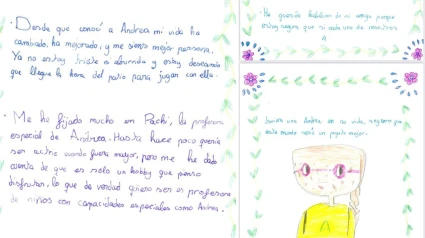 · Desde que conocí a Andrea mi vida ha
cambiado, ha mejorado, y me siento mejor persona.
Ya no estoy triste o aburrida y estoy deseando
que llegue la hora del patio para jugar con ella.
· Me he fijado mucho en Pachi, la profesora
especial de Andrea. Hasta hace poco quería
ser actriz cuando fuera mayor, pero me he dado
cuenta de que es solo un hobby que pienso
disfrutar, lo que de verdad quiero ser es profesora
de niños con capacidades especiales como Andrea.
· He querido hablar de mi amiga porque
estoy segura que si cada uno de nosotros
tuviera una Andrea en su vida, seguro que
este mundo sería un poquito mejor.